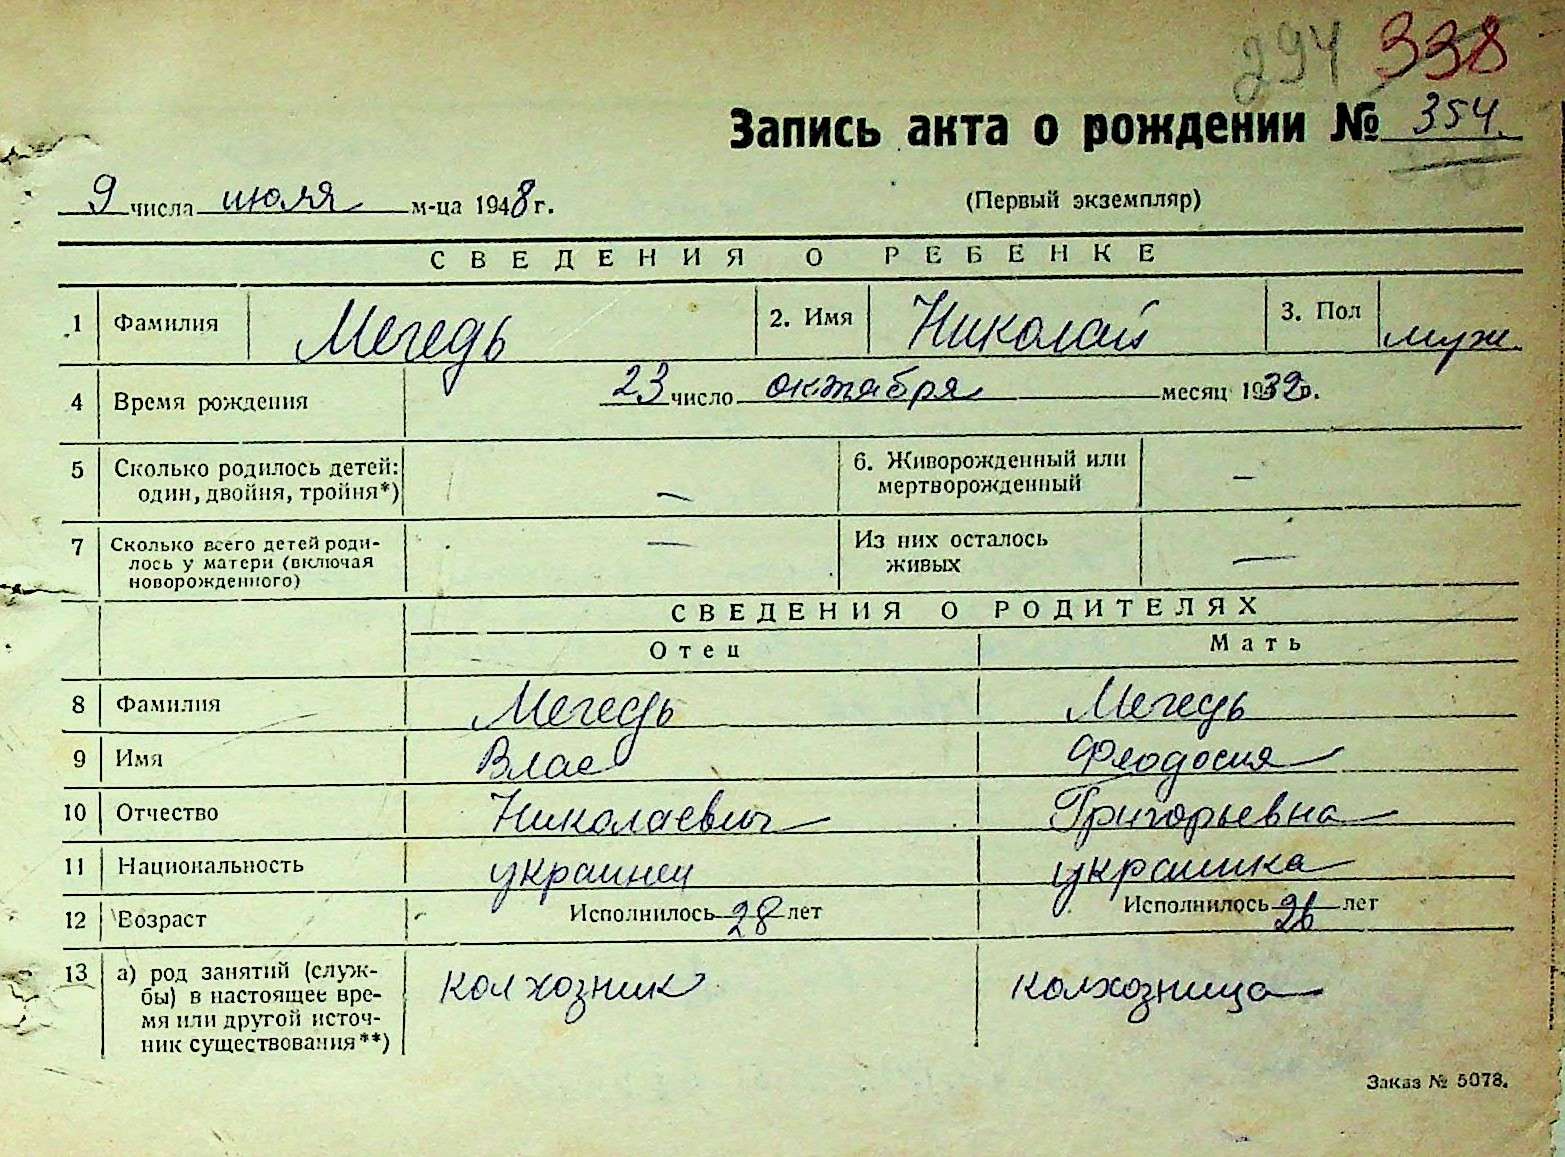 294 338
Запись акта о рождении № 354.
9 числа июля м-ца 1948 г.
(Первый экземпляр)
СВЕДЕНИЯ О РЕБЕНКЕ
1 Фамилия Мегедь 2. Имя Николай 3. Пол муж.
4 Время рождения 23 число октября месяц 1939 г.
5 Сколько родилось детей: один, двойня, тройня*) — 6. Живорожденный или мертворожденный —
7 Сколько всего детей роди-
лось у матери (включая
новорожденного) — Из них осталось живых —
СВЕДЕНИЯ О РОДИТЕЛЯХ
Отец Мать
8 Фамилия Мегедь Мегедь
9 Имя Влас Феодосия
10 Отчество Николаевич Григорьевна
11 Национальность украинец украинка
12 Возраст Исполнилось 28 лет Исполнилось 26 лет
13 а) род занятий (служ- колхозник колхозница
бы) в настоящее вре-
мя или другой источ-
ник существования**)
Заказ № 5078.